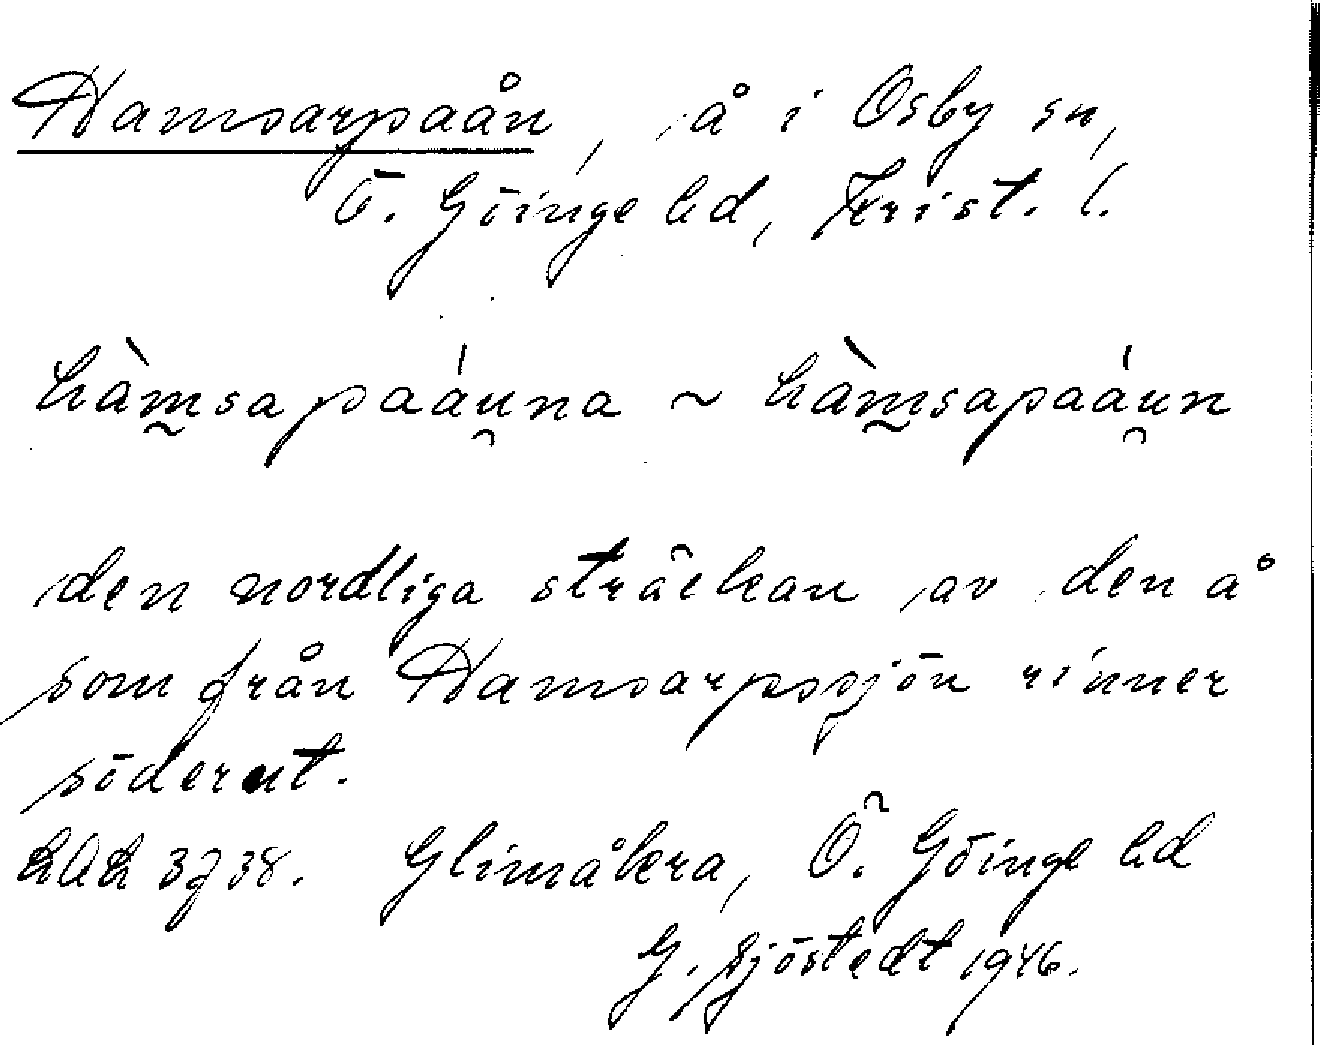 Hamsarpaån, å i Osby sn,
Ö. Göinge hd, Krist. l.
hàm̰sapaáu̯na ~ hàm̰sapaáu̯n
den nordliga sträckan av den å
som från Hamsarpssjön rinner
söderut.
3738. Glimåkra, Ö. Göinge hd
G. Sjöstedt 1946.